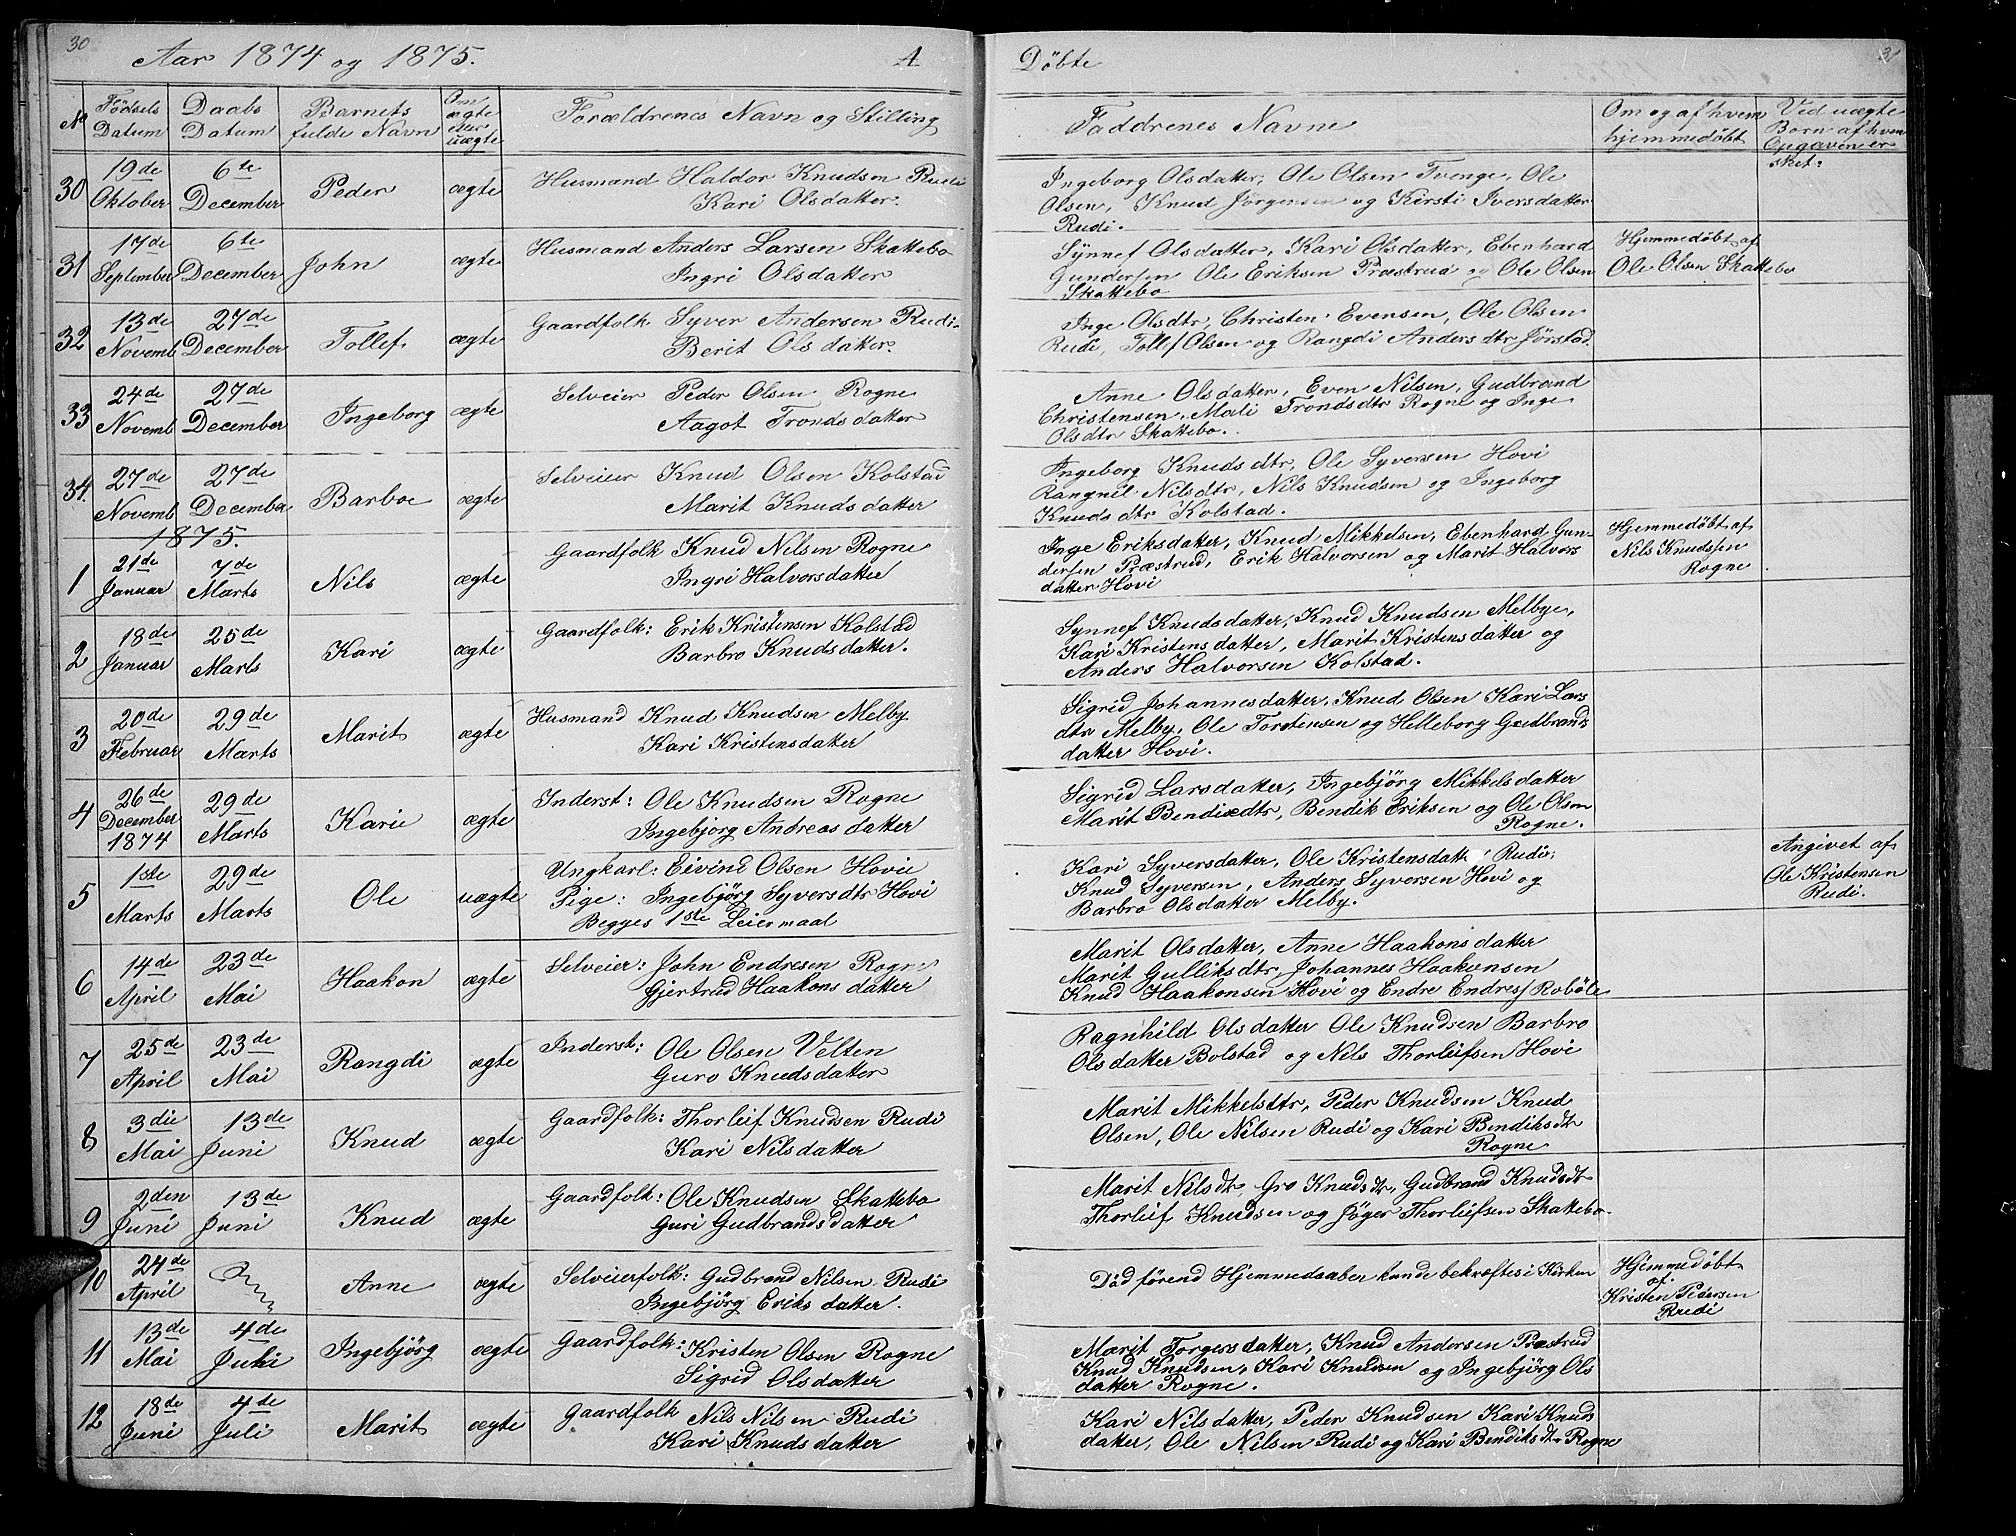 30
Aar 1874 og 1875.
A
No
Fødsels Datum
Daabs Datum
Barnets fulde Navn
Om ægte eller uægte
Forældrenes Navn og Stilling
30
19de Oktober
6te December
Peder
ægte
Husmand Haldor Knudsen Rudi
Kari Olsdatter.
31
17de September
6te December
John
ægte
Husmand Anders Larsen Skattebo
Ingri Olsdatter
32
13de Novemb
27de December
Tollef
ægte
Gaardfolk Syver Andersen Rudi.
Berit Olsdatter.
33
24de Novemb
27de December
Ingeborg
ægte
Selveier Peder Olsen Rogne
Aagot Tronds datter
34.
27de Novemb
27de December
Barboe
ægte
Selveier Knud Olsen Kolstad
Marit Knuds datter
1875.
1
21de Januar
7de Marts
Nils
ægte
Gaardfolk Knud Nilsen Rogne
Ingri Halvorsdatter
2
18de Januar
25de Marts
Kari
ægte
Gaardfolk: Erik Kristensen Kolstad
Barbro Knudsdatter.
3
20de Februar
29de Marts
Marit
ægte
Husmand Knud Knudsen Melby
Kari Kristensdatter
4
26de December 1874
29de Marts
Karie
ægte
Inderst: Ole Knudsen Rogne
Ingebjorg Andreas datter
5
1ste Marts
29de Marts
Ole
uægte
Ungkarl: Eivind Olsen Hovie
Pige: Ingebjørg Syversdtr Hovi
Begges 1ste Leiermaal
6
14de April
23de Mai
Haakon
ægte
Selveier: John Endresen Rogne
Gjertrud Haakons datter
7
25de April
23de Mai
Rangdi
ægte
Inderst: Ole Olsen Velten
Guro Knudsdatter
8
3die Mai
13de Juni
Knud
ægte
Gaardfolk: Thorleif Knudsen Rudi
Kari Nilsdatter
9
2den Juni
13de Juni
Knud
ægte
Gaardfolk: Ole Knudsen Skattebo
Guri Gudbrandsdatter
10
24de April
Anne
ægte
Selveierfolk: Gudbrand Nilsen Rudi
Ingebjörg Eriks datter.
11
13de Mai
4de Juli
Ingebjörg
ægte
Gaardfolk: Kristen Olsen Rogne
Sigrid Olsdatter
12
18de Juni
4de Juli
Marit
ægte
Gaardfolk Nils Nilsen Rudi
Kari Knuds datter
31
Döbte
Faddrenes Navne
Om og af hvem hjemmedøbt
Ved uægte Børn af hvem Opgaven er sket.
Ingeborg Olsdatter, Ole Olsen Tvenge, Ole
Olsen, Knud Jörgensen og Kirsti Iversdatter
Rudi.
Synnef Olsdatter, Kari Olsdatter, Ebenhard
Gundersen Ole Eriksen Præstrud og Ole Olsen
Skattebo
Hjemmedøbt af
Ole Olsen Skattebo
Inge Olsdtr, Christen Evensen, Ole Olsen
Rudi, Tollef Olsen og Rangdi Anders dtr Jørstad
Anne Olsdatter, Even Nilsen, Gudbrand
Christensen, Mali Trondsdtr Rogne og Inge
Olsdtr Skattebo.
Ingeborg Knuds dtr, Ole Syversen Hovi
Rangnil Nilsdtr, Nils Knudsen og Ingeborg
Knuds dtr Kolstad.
Inge Eriksdatter, Knud Mikkelsen, Ebenhard Gun-
dersen Præstrud, Erik Halvorsen og Marit Halvors
datter Hovi
Hjemmedøbt af
Nils Knudssen
Rogne
Synnef Knudsdatter, Knud Knudsen Melbye,
Kari Kristensdatter, Marit Kristensdatter og
Anders Halvorsen Kolstad.
Sigrid Johannesdatter, Knud Olsen Kari Lars
dtr Melby, Ole Torstensen og Helleborg Gudbrands
datter Hovi.
Sigrid Larsdatter, Ingebjörg Mikkelsdatter
Marit Bendixdtr, Bendik Eriksen og Ole Olsen
Rogne.
Kari Syversdatter, Ole Kristensdatt Rudi,
Knud Syversen, Anders Syversen Hovi og
Barbro Olsdatter Melby.
Angivet af
Ole Kristensen
Rudi.
Marit Olsdatter, Anne Haakonsdatter
Marit Gulliksdtr, Johannes Haakonsen
Knud Haakonsen Hovi og Endre Endres/ Robøle
Ragnhild Olsdatter Ole Knudsen Barbro
Olsdatter Bolstad og Nils Thorleifsen Hovi
Marit Mikkelsdtr, Peder Knudsen Knud
Olsen, Ole Nilsen Rudi og Kari Bendiksdtr
Rogne
Marit Nilsdtr, Gro Knudsdtr, Gudbrand Knudsdtr
Thorleif Knudsen og Jöger Thorleifsen Skattebo.
Död förend Hjemmedaaben kunde bekræftes i Kirken
Hjemmedøbt
af
Kristen Pedersen
Rudi
Marit Torgersdatter, Knud Andersen Præstrud
Knud Knudsen, Kari Knudsen og Ingebjörg Ols
datter Rogne.
Kari Nilsdatter, Peder Knudsen Kari Knuds
datter, Ole Nilsen Rudi og Kari Bendiksdtr Rogne